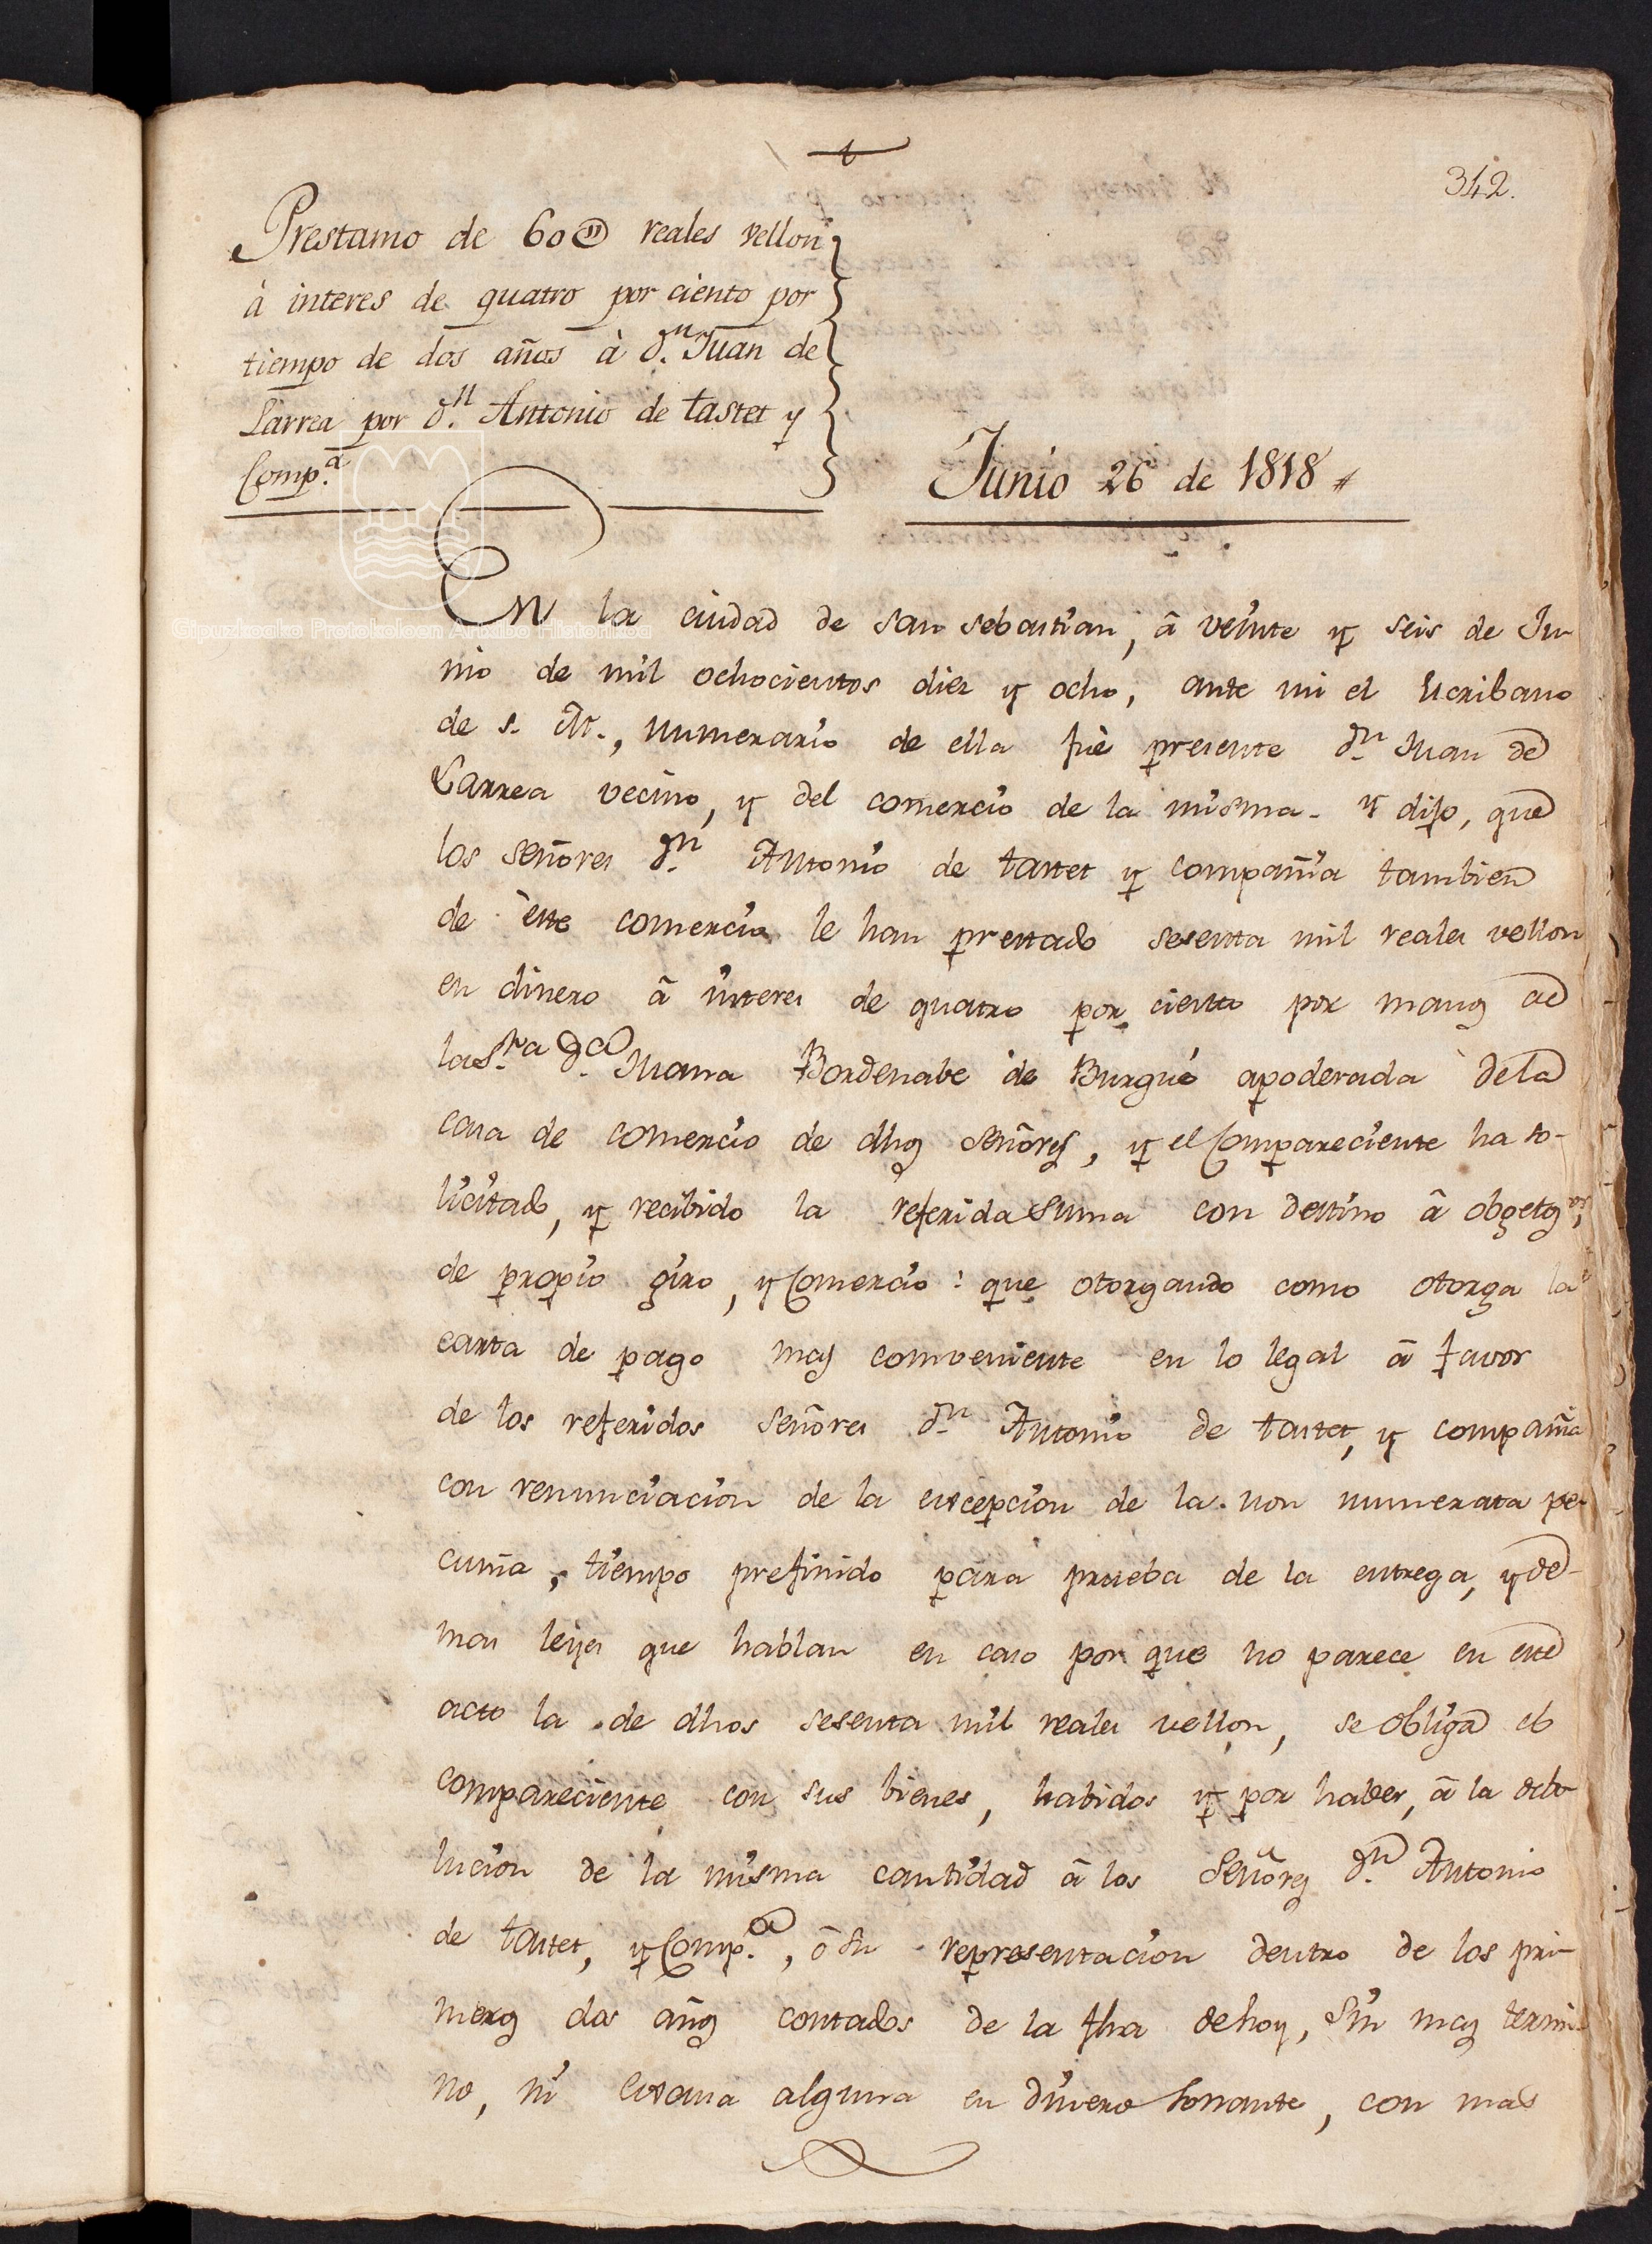 342.
Prestamo de 60@ reales vellon
à interes de quatro por ciento por
tiempo de dos años à d.n Juan de
Larrea por d.n Antonio de Tastet y
Comp.a
Junio 26 de 1818
En la ciudad de San Sebastian, â veinte y seis de Ju-
nio de mil ochocientos diez y ocho, ante mi el Escribano
de S. M., numerario de ella fuè presente d.n Juan de
Larrea vecino, y del comercio de la misma. y dijo, que
los señores d.n Antonio de Tastet y compañia tambien
de èste comercio le han prestado sesenta mil reales vellon
en dinero â interes de quatro por ciento por manos de
la S.ra d.a Juana Bordenabe de Burgué apoderada dela
casa de comercio de dhos señores, y el Compareciente ha so-
licitado, y recibido la referida suma con destino â obgetos
de propio giro, y Comercio: que otorgando como otorga la
carta de pago mas conveniente en lo legal â favor
de los referidos señores d.n Antonio de Tastet, y compañia
con renunciacion de la excepcion de la non numerata pe-
cunia, tiempo prefinido para prueba de la entrega, y de-
mas leyes que hablan en caso por que no parece en este
acto la de dhos sesenta mil reales vellon, se obliga el
compareciente con sus bienes, habidos y por haber, â la debo-
lucion de la misma cantidad â los Señores d.n Antonio
de Tastet, y Comp.a, ô su representacion dentro de los pri-
meros dos años contados de la fha de hoy, sin mas termi-
no, ni escusa alguna en dinero sonante, con mas
Gipuzkoako Protokoloen Artxibo Historikoa